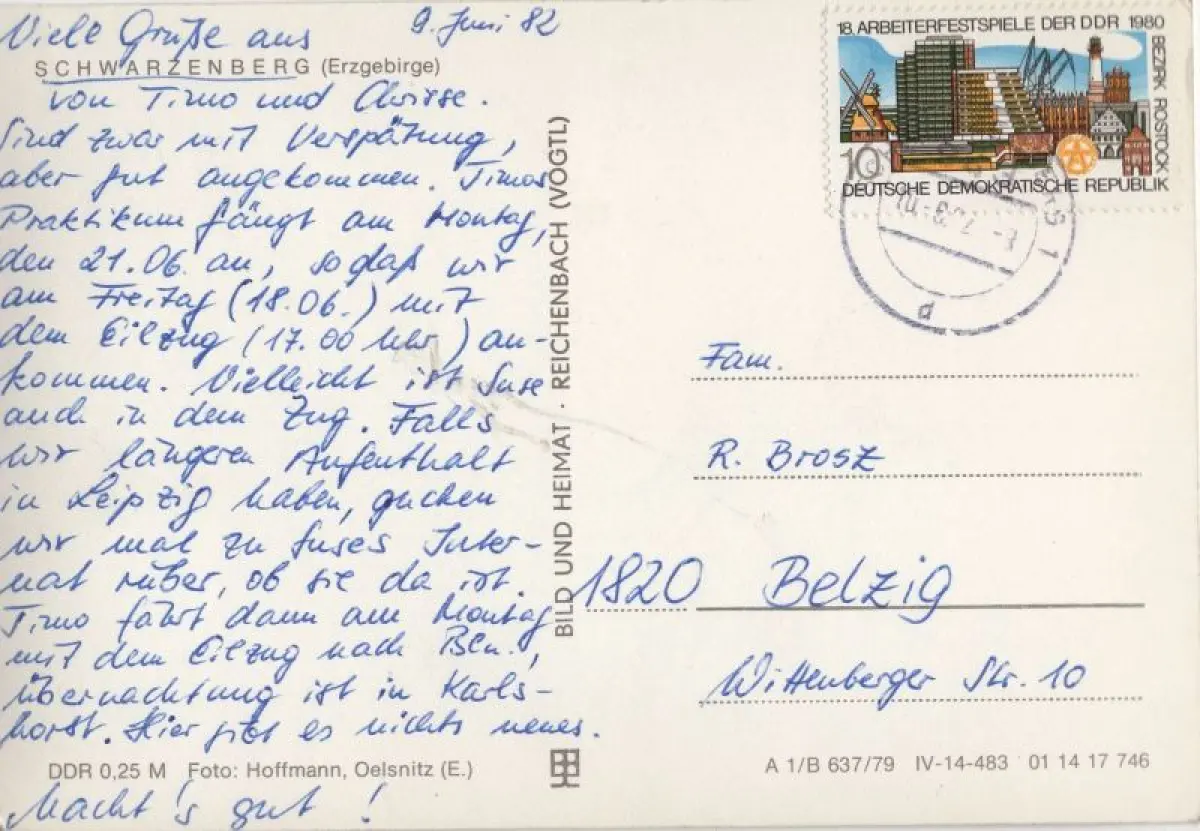 9. Juni 82
Viele Grüße aus
SCHWARZENBERG (Erzgebirge)
von Timo und Chrisse.
Sind zwar mit Verspätung,
aber gut angekommen. Timos
Praktikum fängt am Montag,
den 21.06. an, sodaß wir
am Freitag (18.06.) mit
dem Eilzug (17.00 Uhr) an-
kommen. Vielleicht ist Suse
auch in dem Zug. Falls
wir längeren Aufenthalt
in Leipzig haben, gucken
wir mal zu Suses Inter-
nat rüber, ob sie da ist.
Timo fährt dann am Montag
mit dem Eilzug nach Bln.,
übernachtung ist in Karls-
horst. Hier gibt es nichts neues.
DDR 0,25 M Foto: Hoffmann, Oelsnitz (E.)
Macht's gut!
BILD UND HEIMAT · REICHENBACH (VOGTL)
18. ARBEITERFESTSPIELE DER DDR 1980
BEZIRK ROSTOCK
10
DEUTSCHE DEMOKRATISCHE REPUBLIK
1
d
Fam.
R. Brosz
1820 Belzig
Wittenberger Str. 10
A 1/B 637/79 IV-14-483 01 14 17 746